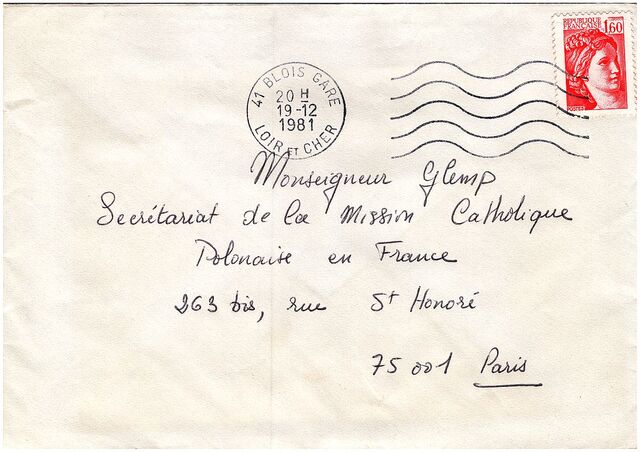 REPUBLIQUE
FRANCAISE 1,60
41 BLOIS GARE
20 H
19-12
1981
LOIR ET CHER
Monseigneur Glemp
Secrétariat de la Mission Catholique
Polonaise en France
263 bis, rue St Honoré
75001 Paris